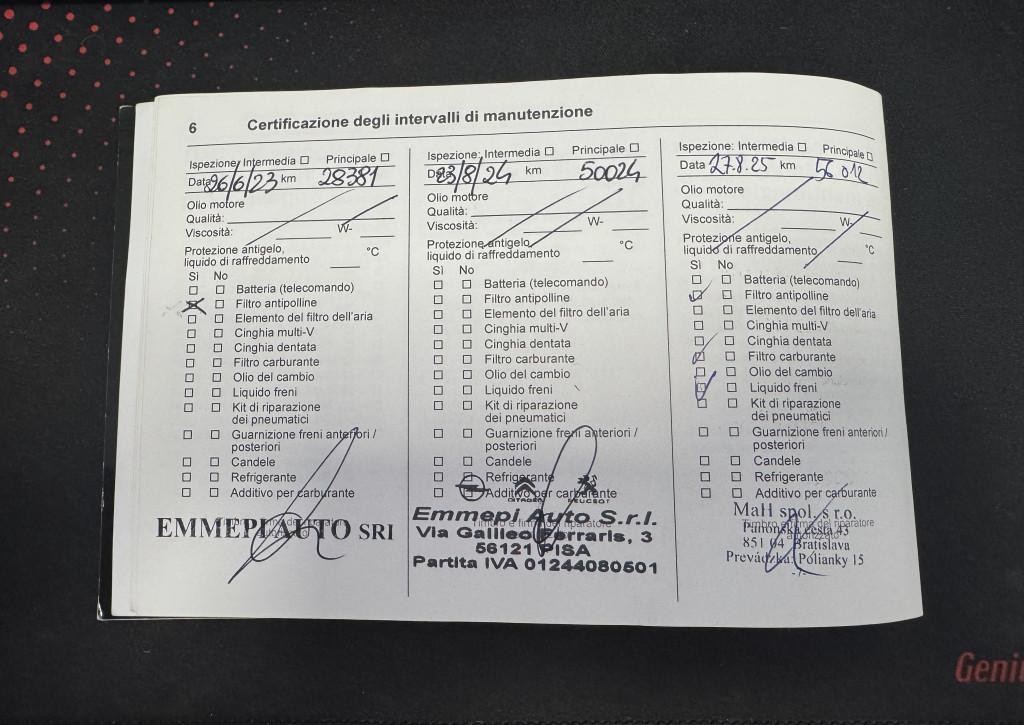 6
Certificazione degli intervalli di manutenzione
Ispezione: Intermedia Principale
Data 26/6/23 km 28381
Olio motore
Qualità:
Viscosità: W-
Protezione antigelo,
liquido di raffreddamento °C
Sì No
Batteria (telecomando)
Filtro antipolline
Elemento del filtro dell'aria
Cinghia multi-V
Cinghia dentata
Filtro carburante
Olio del cambio
Liquido freni
Kit di riparazione
dei pneumatici
Guarnizione freni anteriori /
posteriori
Candele
Refrigerante
Additivo per carburante
EMMEPI AUTO SRL
Ispezione: Intermedia Principale
23/8/24 km 50024
Olio motore
Qualità:
Viscosità: W-
Protezione antigelo,
liquido di raffreddamento °C
Sì No
Batteria (telecomando)
Filtro antipolline
Elemento del filtro dell'aria
Cinghia multi-V
Cinghia dentata
Filtro carburante
Olio del cambio
Liquido freni
Kit di riparazione
dei pneumatici
Guarnizione freni anteriori /
posteriori
Candele
Refrigerante
Additivo per carburante
CITROËN PEUGEOT
Timbro e firma del riparatore
Emmepi Auto S.r.l.
Via Galileo Ferraris, 3
56121 PISA
Partita IVA 01244080501
Ispezione: Intermedia Principale
Data 27.8.25 km 56012
Olio motore
Qualità:
Viscosità: W-
Protezione antigelo,
liquido di raffreddamento °C
Sì No
Batteria (telecomando)
Filtro antipolline
Elemento del filtro dell'aria
Cinghia multi-V
Cinghia dentata
Filtro carburante
Olio del cambio
Liquido freni
Kit di riparazione
dei pneumatici
Guarnizione freni anteriori /
posteriori
Candele
Refrigerante
Additivo per carburante
MaH spol. s r.o.
Timbro e firma del riparatore
autorizzato
Panónska cesta 43
851 04 Bratislava
Prevádzka: Polianky 15
-7-
Geniu